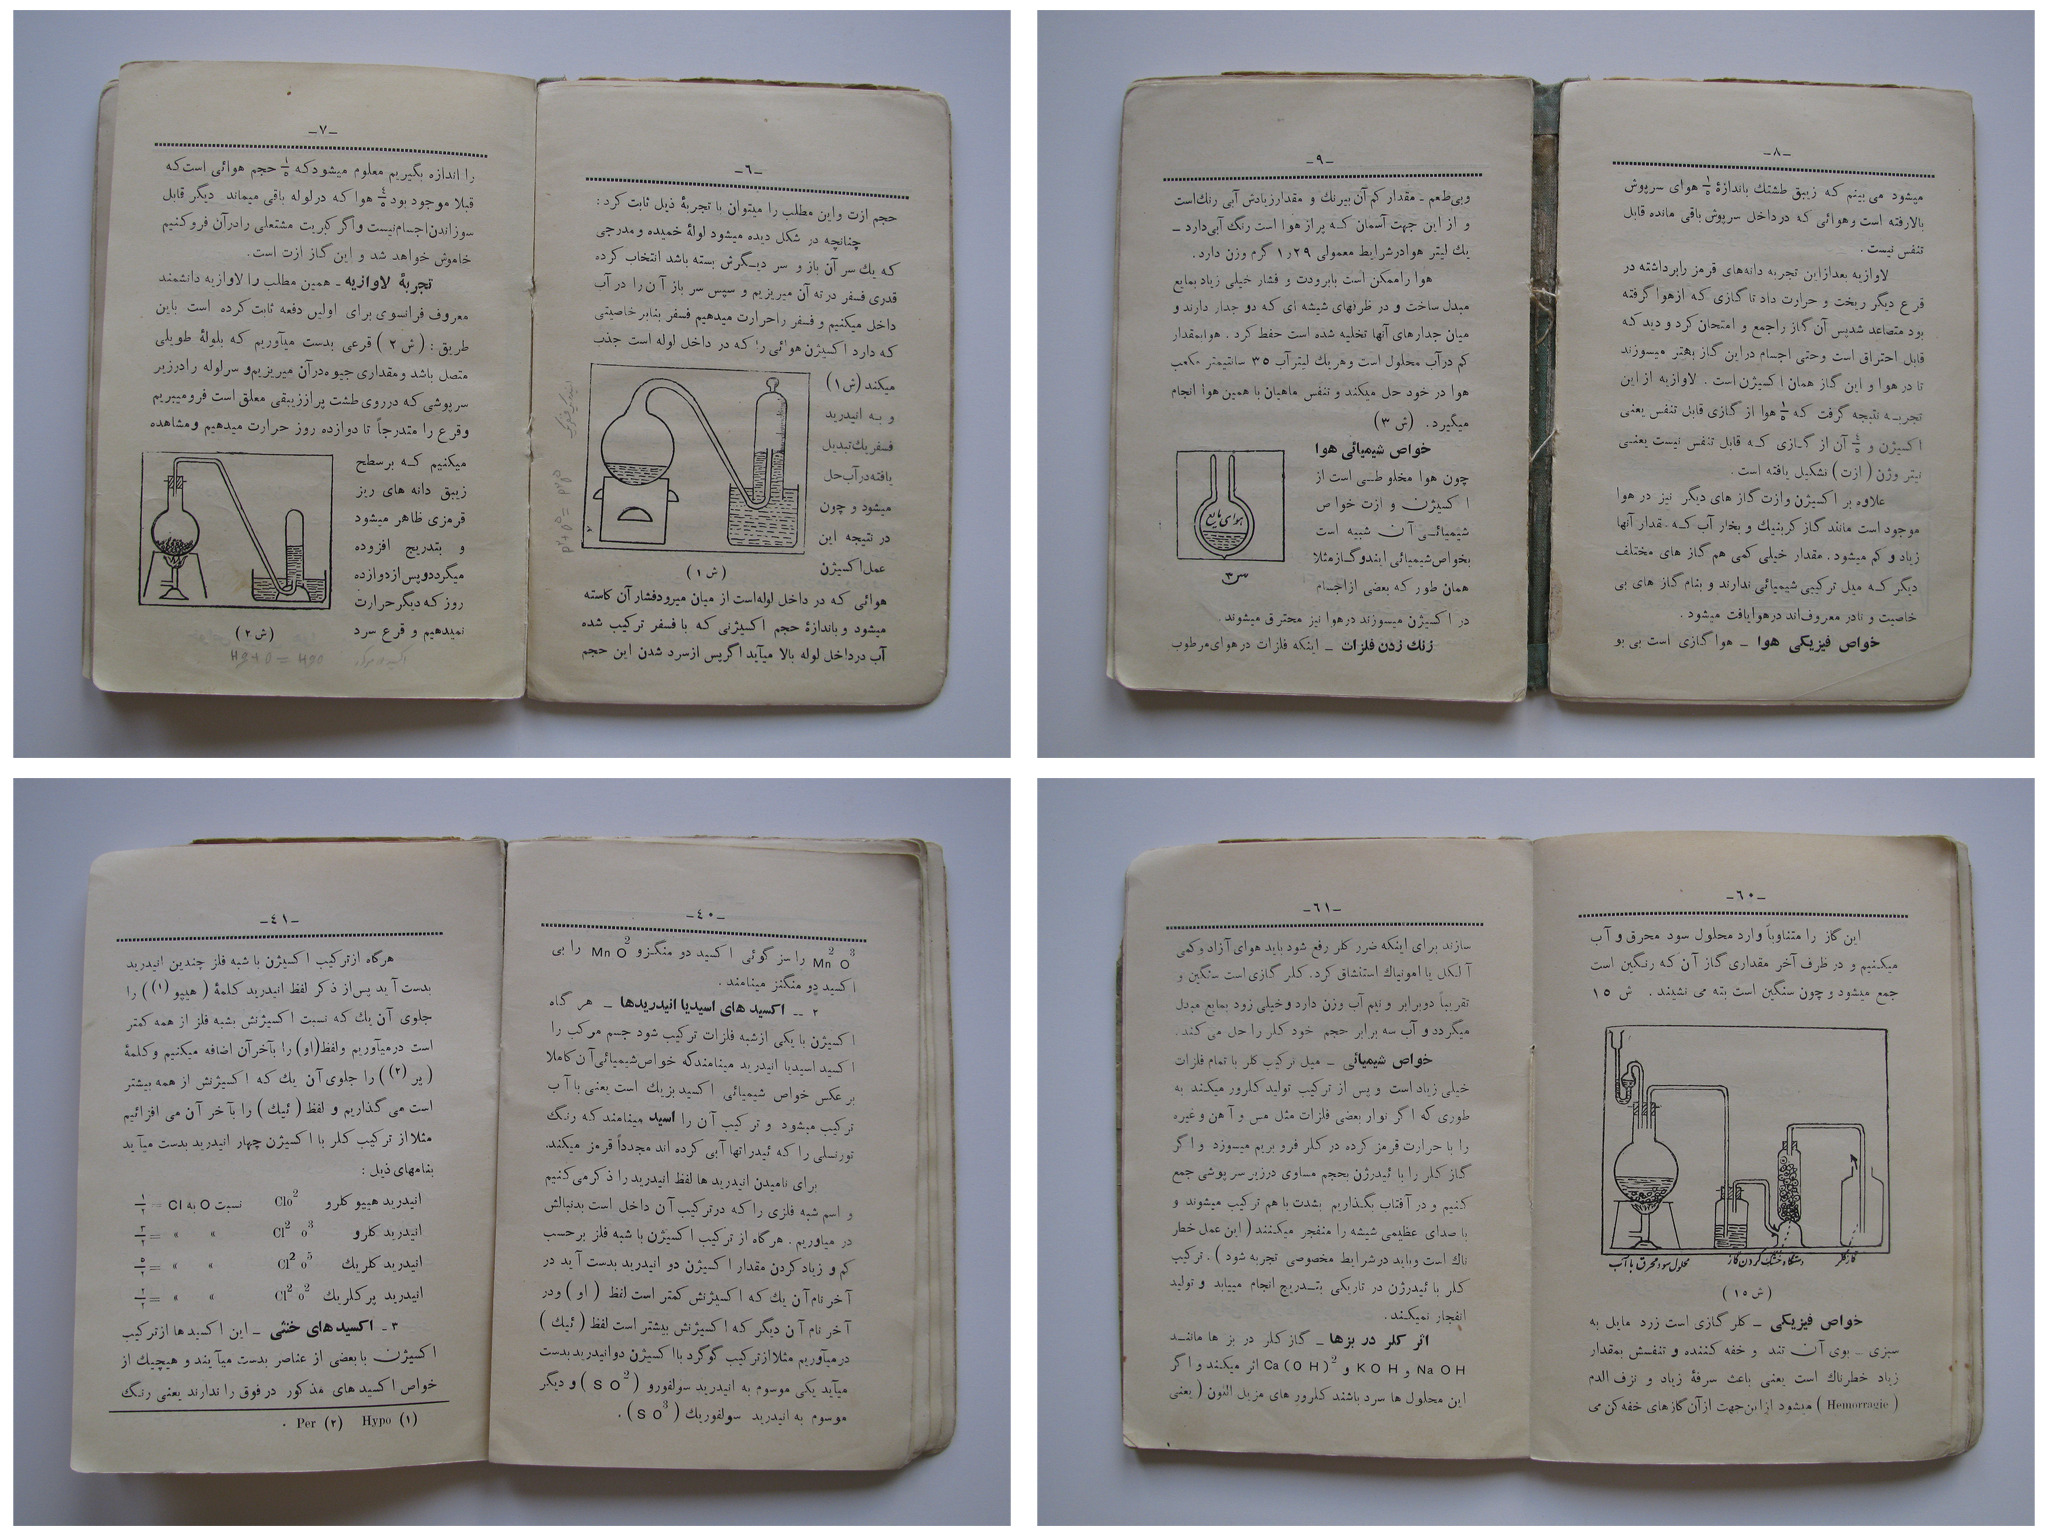 -٦-
حجم ازت و این مطلب را میتوان با تجربهٔ ذیل ثابت کرد :
چنانچه در شکل دیده میشود لولهٔ خمیده و مدرجی
که یك سر آن باز و سر دیگرش بسته باشد انتخاب کرده
قدری فسفر در ته آن میریزیم و سپس سر باز آن را در آب
داخل میکنیم و فسفر را حرارت میدهیم فسفر بنابر خاصیتی
که دارد اکسیژن هوائی را که در داخل لوله است جذب
میکند (ش ۱)
و به انیدرید
فسفریك تبدیل
یافته در آب حل
میشود و چون
در نتیجه این
عمل اکسیژن
( ش ۱ )
هوائی که در داخل لوله است از میان میرود فشار آن کاسته
میشود و باندازهٔ حجم اکسیژنی که با فسفر ترکیب شده
آب در داخل لوله بالا میآید اگر پس از سرد شدن این حجم
-۷-
را اندازه بگیریم معلوم میشود که ۱/۵ حجم هوائی است که
قبلا موجود بود ٤/۵ هوا که در لوله باقی میماند دیگر قابل
سوزاندن اجسام نیست و اگر کبریت مشتعلی را در آن فرو کنیم
خاموش خواهد شد و این گاز ازت است.
تجربهٔ لاوازیه ـ همین مطلب را لاوازیه دانشمند
معروف فرانسوی برای اولین دفعه ثابت کرده است باین
طریق : ( ش ۲ ) قرعی بدست میآوریم که بلولهٔ طویلی
متصل باشد و مقداری جیوه در آن میریزیم و سر لوله را در زیر
سرپوشی که در روی طشت پر از زیبقی معلق است فرو میبریم
و قرع را متدرجاً تا دوازده روز حرارت میدهیم و مشاهده
میکنیم که بر سطح
زیبق دانه های ریز
قرمزی ظاهر میشود
و بتدریج افزوده
میگردد و پس از دوازده
روز که دیگر حرارت
نمیدهیم و قرع سرد
( ش ۲ )
Hg+O = HgO
-۸-
میشود می بینم که زیبق طشتك باندازهٔ ۱/۵ هوای سرپوش
بالا رفته است و هوائی که در داخل سرپوش باقی مانده قابل
تنفس نیست .
لاوازیه بعد از این تجربه دانه‌های قرمز را برداشته در
قرع دیگر ریخت و حرارت داد تا گازی که از هوا گرفته
بود متصاعد شد پس آن گاز را جمع و امتحان کرد و دید که
قابل احتراق است وحتی اجسام در این گاز بهتر میسوزند
تا در هوا و این گاز همان اکسیژن است . لاوازیه از این
تجربه نتیجه گرفت که ۱/۵ هوا از گازی قابل تنفس یعنی
اکسیژن و ٤/۵ آن از گازی که قابل تنفس نیست یعنی
نیتروژن ( ازت ) تشکیل یافته است .
علاوه بر اکسیژن و ازت گاز های دیگر نیز در هوا
موجود است مانند گاز کربنیك و بخار آب که مقدار آنها
زیاد و کم میشود . مقدار خیلی کمی هم گاز های مختلف
دیگر که میل ترکیبی شیمیائی ندارند و بنام گاز های بی
خاصیت و نادر معروف‌اند در هوا یافت میشود .
خواص فیزیکی هوا ـ هوا گازی است بی بو
-۹-
و بی طعم ـ مقدار کم آن بیرنك و مقدار زیادش آبی رنك است
و از این جهت آسمان که پر از هوا است رنگ آبی دارد ـ
یك لیتر هوا در شرایط معمولی ۱٫۲۹ گرم وزن دارد .
هوا را ممکن است با برودت و فشار خیلی زیاد بمایع
مبدل ساخت و در ظرفهای شیشه ای که دو جدار دارند و
میان جدارهای آنها تخلیه شده است حفظ کرد . هوا بمقدار
کم در آب محلول است و هر یك لیتر آب ۳۵ سانتیمتر مکعب
هوا در خود حل میکند و تنفس ماهیان با همین هوا انجام
میگیرد . (ش ۳)
خواص شیمیائی هوا
چون هوا مخلوطی است از
اکسیژن و ازت خواص
شیمیائی آن شبیه است
بخواص شیمیائی ایندو گاز مثلا
همان طور که بعضی از اجسام
هوای مایع
ش ۳
در اکسیژن میسوزند در هوا نیز محترق میشوند .
زنك زدن فلزات ـ اینکه فلزات در هوای مرطوب
-٤۰-
Mn² O³ را سز گوئی اکسید دو منگنز و Mn O² را بی
اکسید دو منگنز مینامند .
۲ ـ اکسید های اسید یا انیدریدها ـ هر گاه
اکسیژن با یکی از شبه فلزات ترکیب شود جسم مرکب را
اکسید اسید یا انیدرید مینامند که خواص شیمیائی آن کاملا
بر عکس خواص شیمیائی اکسید بزیك است یعنی با آب
ترکیب میشود و ترکیب آن را اسید مینامند که رنگ
تورنسلی را که ئیدراتها آبی کرده اند مجدداً قرمز میکند.
برای نامیدن انیدرید ها لفظ انیدرید را ذکر می‌کنیم
و اسم شبه فلزی را که در ترکیب آن داخل است بدنبالش
در میاوریم . هر گاه از ترکیب اکسیژن با شبه فلز بر حسب
کم و زیاد کردن مقدار اکسیژن دو انیدرید بدست آید در
آخر نام آن یك که اکسیژنش کمتر است لفظ ( او ) و در
آخر نام آن دیگر که اکسیژنش بیشتر است لفظ ( ئیك )
در میآوریم مثلا از ترکیب گوگرد با اکسیژن دو انیدرید بدست
میآید یکی موسوم به انیدرید سولفورو ( S O² ) و دیگر
موسوم به انیدرید سولفوریك ( S O³ ) .
-٤۱-
هرگاه از ترکیب اکسیژن با شبه فلز چندین انیدرید
بدست آید پس از ذکر لفظ انیدرید کلمهٔ ( هیپو (۱) ) را
جلوی آن یك که نسبت اکسیژنش بشبه فلز از همه کمتر
است در میآوریم و لفظ (او) را بآخر آن اضافه میکنیم و کلمهٔ
( پر (۲) ) را جلوی آن یك که اکسیژنش از همه بیشتر
است می گذاریم و لفظ ( ئیك ) را بآخر آن می افزائیم
مثلا از ترکیب کلر با اکسیژن چهار انیدرید بدست میآید
بنامهای ذیل :
انیدرید هیپو کلرو Clo² نسبت O به Cl = ۱/۲
انیدرید کلرو Cl² o³ » » = ۳/۲
انیدرید کلریك Cl² o⁵ » » = ۵/۲
انیدرید پرکلریك Cl² o² » » = ۲/۲
۳ ـ اکسیدهای خنثی ـ این اکسید ها از ترکیب
اکسیژن با بعضی از عناصر بدست میآیند و هیچیك از
خواص اکسید های مذکور در فوق را ندارند یعنی رنگ
(۱) Hypo (۲) Per .
-٦۰-
این گاز را متناوباً وارد محلول سود محرق و آب
میکنیم و در ظرف آخر مقداری گاز آن که رنگین است
جمع میشود و چون سنگین است بته می نشیند . ش ۱۵
محلول سود محرق با آب
دستگاه خشك کردن گاز
گاز کلر
( ش ۱۵ )
خواص فیزیکی ـ کلر گازی است زرد مایل به
سبزی ـ بوی آن تند و خفه کننده و تنفسش بمقدار
زیاد خطرناك است یعنی باعث سرفهٔ زیاد و نزف الدم
( Hemorragie ) میشود از این جهت از آن گازهای خفه کن می
-٦۱-
سازند برای اینکه ضرر کلر رفع شود باید هوای آزاد و کمی
آلکل یا امونیاك استنشاق کرد. کلر گازی است سنگین و
تقریباً دو برابر و نیم آب وزن دارد و خیلی زود بمایع مبدل
میگردد و آب سه برابر حجم خود کلر را حل می کند .
خواص شیمیائی ـ میل ترکیب کلر با تمام فلزات
خیلی زیاد است و پس از ترکیب تولید کلرور میکند به
طوری که اگر نوار بعضی فلزات مثل مس و آهن و غیره
را با حرارت قرمز کرده در کلر فرو بریم میسوزد و اگر
گاز کلر را با ئیدرژن بحجم مساوی در زیر سر پوشی جمع
کنیم و در آفتاب بگذاریم بشدت با هم ترکیب میشوند و
با صدای عظیمی شیشه را منفجر میکنند ( این عمل خطر
ناك است و باید در شرایط مخصوصی تجربه شود ) . ترکیب
کلر با ئیدرژن در تاریکی بتدریج انجام مییابد و تولید
انفجار نمیکند .
اثر کلر در بزها ـ گاز کلر در بز ها مانند
Na OH و K OH و Ca ( OH )² اثر میکند و اگر
این محلول ها سرد باشند کلرور های مزیل اللون ( یعنی